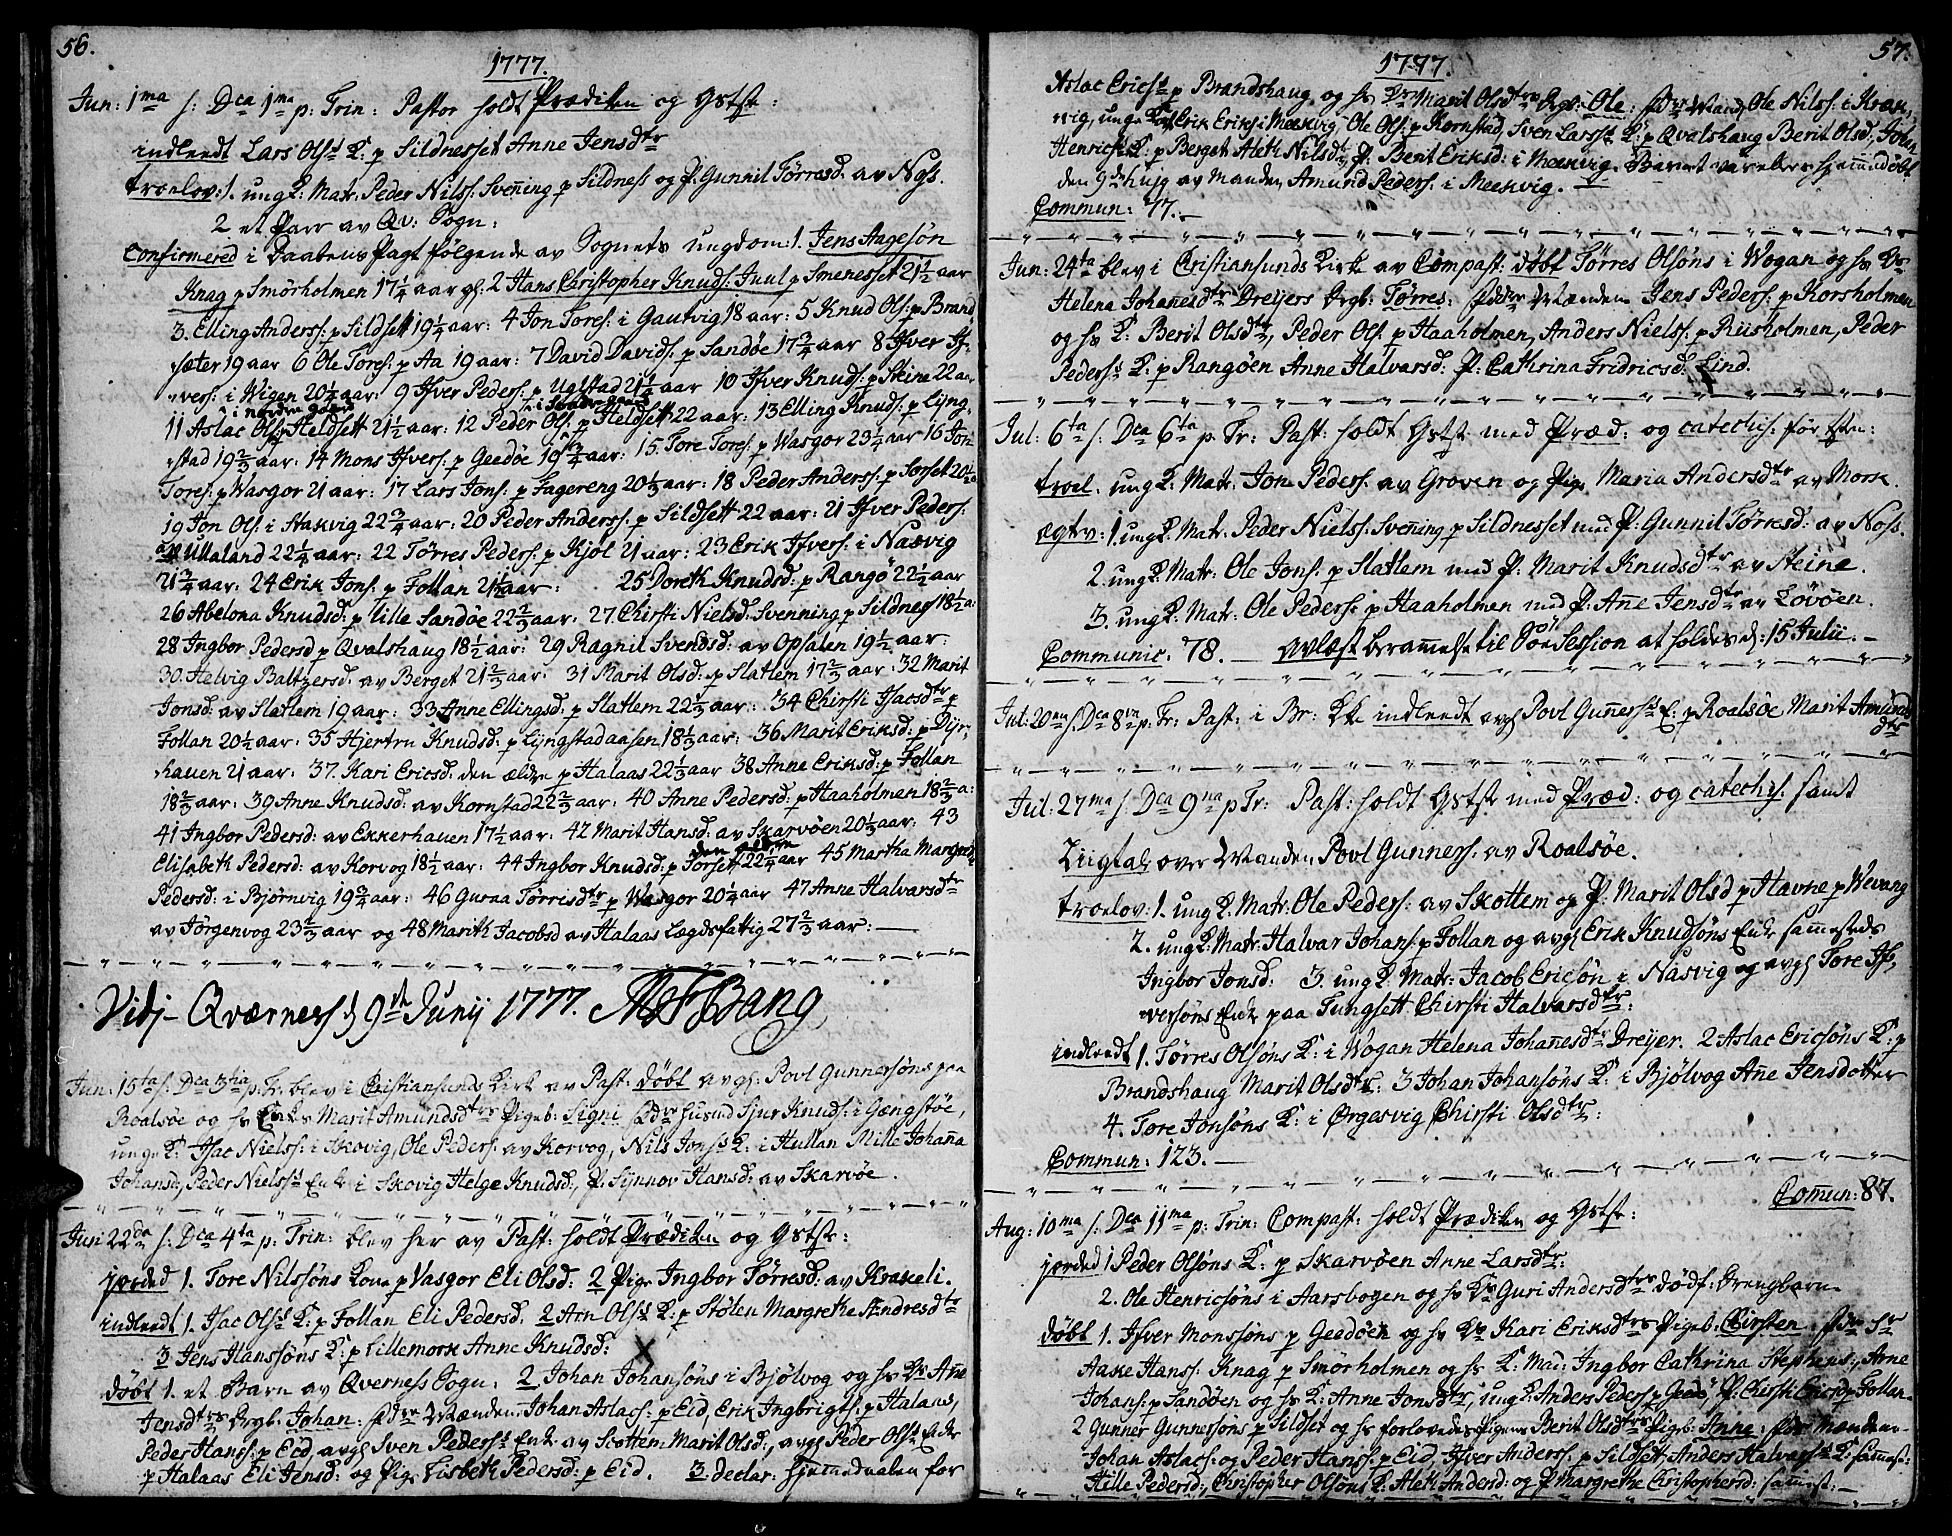 56.
1777.
Jun: 1ma s: Dca 1ma p: Trin: Pastor holdt Prædiken og Gstste:
indleedt Lars Olsø K: p Sildnesset Anne Jensdtr
troelov: 1. ung K: Matr: Peder Nilss: Svenning p Sildness og P: Gunnil Tørresd: av Nos.
2 et Parr av Qv: Sogn:
Confirmered i Daabens Pagt følgende av Sognets ungdom: 1. Jens Aagesøn
Knag p Smørholmen 17¼ aar gl: 2 Hans Christopher Knuds: Juul p Smenesset 21½ aar
3. Elling Anders: p Sildsett 19¼ aar: 4 Jon Tores: i Gautvig 18 aar: 5 Knud Ols: p Brand
sæter 19 aar 6 Ole Tores: p Aa 19 aar: 7 David Davids: p Sandøe 17¾ aar 8 Ifver If-
vers: i Wigen 20¼ aar: 9 Ifver Peders: p Uglstad 21¼ aar 10 Ifver Knuds: p Steine 22 aar
11 Aslac Ols: p Heldsett 21½ aar: 12 Peder Ols: p Heldsett 22 aar: 13 Elling Knuds: p Lyng-
stad 19⅔ aar: 14 Mons Ifvers: p Geedøe 19¾ aar: 15. Tore Tores: p Wasgor 23¼ aar 16 Jon
Tores: p Wasgor 21 aar: 17 Lars Jons: p Fagereng 20⅓ aar: 18 Peder Anders: p Sorset 20½
19 Jon Ols: i Aakvig 22¾ aar: 20 Peder Anderss: p Sildsett 22 aar: 21 Ifver Peders:
av Ullaland 22¼ aar: 22 Tørres Peders: p Kjøl 21 aar: 23 Erik Ifvers: i Nasvig
21¾ aar: 24 Erik Jons: p Follan 21½ aar: 25 Doreth Knudsd: p Rangø 22½ aar
26 Abelona Knudsd: p lille Sandøe 22⅔ aar: 27. Chirsti Nielsd: Svenning p Sildnes 18½ a:
28 Ingbor Pedersd p Qvalshaug 18½ aar: 29 Ragnil Svendsd: av Opsalen 19½ aar:
30. Helvig Baltzersd: av Berget 21⅔ aar: 31 Marit Olsd: p Slatlem 17⅔ aar: 32 Marit
Jonsd: av Slatlem 19 aar: 33 Anne Ellingsd: p Slatlem 22½ aar: 34 Chirsti Isacsdtr p
Follan 20½ aar: 35 Hjertru Knudsd: p Lyngstadaasen 18⅓ aar: 36 Marit Eriksd: p Dyr-
hauen 21 aar: 37. Kari Ericsd: den ældre p Halaas 22⅓ aar 38 Anne Eriksd: p Follan
18⅔ aar: 39 Anne Knudsd: av Kornstad 22⅔ aar: 40 Anne Pedersd: p Haaholmen 18⅔ a:
41 Ingbor Pedersd: av Ekkerhauen 17½ aar: 42 Marit Hansd: av Skarvøen 20⅓ aar: 43
Elisabeth Pedersd: av Korvog 18½ aar: 44 Ingbor Knudsd: p Sorsett 22¼ aar 45 Martha Margrethe
Pedersd: i Bjørnvig 19¾ aar: 46 Guraa Tørrisdtr p Wasgor 20¼ aar 47 Anne Halvarsdtr
av Jørgenvog 23⅔ aar og 48 Marith Jacobsd av Halaas Lagdsfattig 27⅔ aar:
Vidj- Qværness d 9de Junij 1777. Bang
Jun: 15ta s: Dca 3tia p: Tr: blev i Cristiansunds Kirk av Past: døbt avg: Povl Gunnersøns paa
Roalsøe og hs Enkes Marit Amundsdtrs Pigeb: Signi Fdre husmd Sjur Knuds: i Gængstøe,
unge K: Isac Niels: i Skovig, Ole Peders: av Korvog, Nils Jonsø K: i Hullan Mille Johanna
Johansd:, Peder Nielsø Enk i Skovig Helge Knudsd:, P: Synnov Hansd: av Skarvøe.
Jun: 22da s: Dca 4ta p: Trin: blev her av Past: holdt Prædiken og Gstste:
jorded 1. Tore Nilssøns Kone p Vasgor Eli Olsd: 2 Pige Ingbor Tørresd: av Krakeli.
indleedt 1. Isac Olsø K: p Follan Eli Pedersd. 2 Arn Olsø K: p Støten Margrethe Andresdtr
3 Jens Hanssøns K: p Lillemork Anne Knudsd:
døbt 1. et Barn av Qverness Sogn: 2 Johan Johansøns i Bjølvog og hs K: Anne
Jensdtrs Drgb: Johan: Fdre Mænden: Johan Aslacs: p Eid, Erik Ingbrigts: p Haland,
Peder Hans: p Eid avg Sven Pedersø Enk av Scottem Marit Olsd:, avg Peder Olsø Enke
p Halaas Eli Jensd: og Pige Lisbeth Pedersd: p Eid. 3. declar: hjemmedaaben for
57.
1777.
Aslac Ericsø p Brandshaug og hs K: Marit Olsdtrs Drgb: Ole: Fdre Mand Ole Nilss: i Kran-
vig, unge Karl Erik Eriks: i Meekvig, Ole Ols: p Kornstad, Sven Larsø K: p Qvalshaug Berit Olsd, Johan
Henrichsø K: p Berget Aleth Nilsdtr P: Berit Eriksd: i Meekvig. Barnet var ellers hjemmedøbt
den 9de hujs av Manden Amund Peders: i Meekvig.
Commun: 77.
Jun: 24ta blev i Cristiansunds Kirke av Compast: døbt Tørres Olsøns i Wogan og hs K:
Helena Johannesdtrs Dreyers Drgb: Tørres: Fdre Mænden Jens Peders: p Korsholmen
og hs K: Berit Olsdtr, Peder Ols: p Haaholmen, Anders Niels: p Riisholmen, Peder
Pedersø K: p Rangøen Anne Halvarsd: P: Cathrina Fridricsd: Lind.
Jul: 6ta s: Dca 6ta p: Tr: Past: holdt Gstste med Præd: og catechis: før Sten:
troel. ung K: Matr: Jon Peders: av Groven og Pige Maria Andersdtr av Mork.
ægtv: 1. ung K: Matr: Peder Nielss: Svenning p Sildnesset med P: Gunnil Tørresd: av Noss.
2. ung K: Matr: Ole Jons: p Slatlem med P: Marit Knudsdtr av Steine.
3. ung K: Matr: Ole Peders: p Haaholmen med P: Anne Jensdtr av Lovøen.
Communic: 78. avlæst berammelse til Søe Session at holdes d: 15 Julii.
Jul: 20ma s: Dca 8va p: Tr: Past: i Br: Kke indleedt avg Povl Gunnersø E: p Roalsøe Marit Amunds
dtr
Jul: 27ma s: Dca 9na p Tr: Past: holdt Gstste med Præd: og catechis: samt
Liigtale over Manden Povl Gunners: av Roalsøe.
troelov: 1. ung K: Matr: Ole Peders: av Skottem og P: Marit Olsd p Havne p Wevang
2. ung K: Matr: Halvar Johans: p Follan og avg Erik Knudsøns Enke sammesteds
Ingbor Jonsd: 3. ung K: Matr: Jacob Ericsøn i Nasvig og avg Tore If-
versøns Enke paa Tungsett Chirsti Halvarsdtr:
indleedt 1. Tørres Olsøns K: i Wogan Helena Johannesdtr Dreyer. 2 Aslac Ericsøns K: p
Brandshaug Marit Olsdtr: 3 Johan Johansøns K: i Bjølvog Anne Jensdotter
4. Tore Jonsøns K: i Ørgesvig Chirsti Olsdtr:
Commun: 123.
Commun: 87.
Aug: 10ma s: Dca 11ma p: Trin: Compast: holdt Prædiken og Gstste:
jorded 1 Peder Olsøns K: p Skarvøen Anne Larsdtr:
2. Ole Henricsøns i Aarsbogen og hs K: Guri Andersdtrs dødf: Drengbarn.
døbt 1. Ifver Monssøns p Geedøen og hs K: Kari Eriksdtrs Pigeb: Chirsten Fdre Hr
Aake Hans: Knag p Smørholmen og hs K: Mad: Ingbor Cathrina Stephens:, Arne
Johans: p Sandøen og hs K: Anne Jonsdtr, ung K: Anders Peders: p Geedø, P: Chirsti Ericsd p Follan
2 Gunner Gunnersøns p Sildset og hs forlovede Pigens Berit Olsdtrs Pigeb: Anne: Fdre Mænden
Johan Aslacs: og Peder Hans: p Eid, Ifver Anders: p Sildsett, Anders Halvarsø K: sammest:
Hille Pedersd:, Christopher Olsøns K: Aleth Andersd: og P Margrethe Christophersd: sammest: